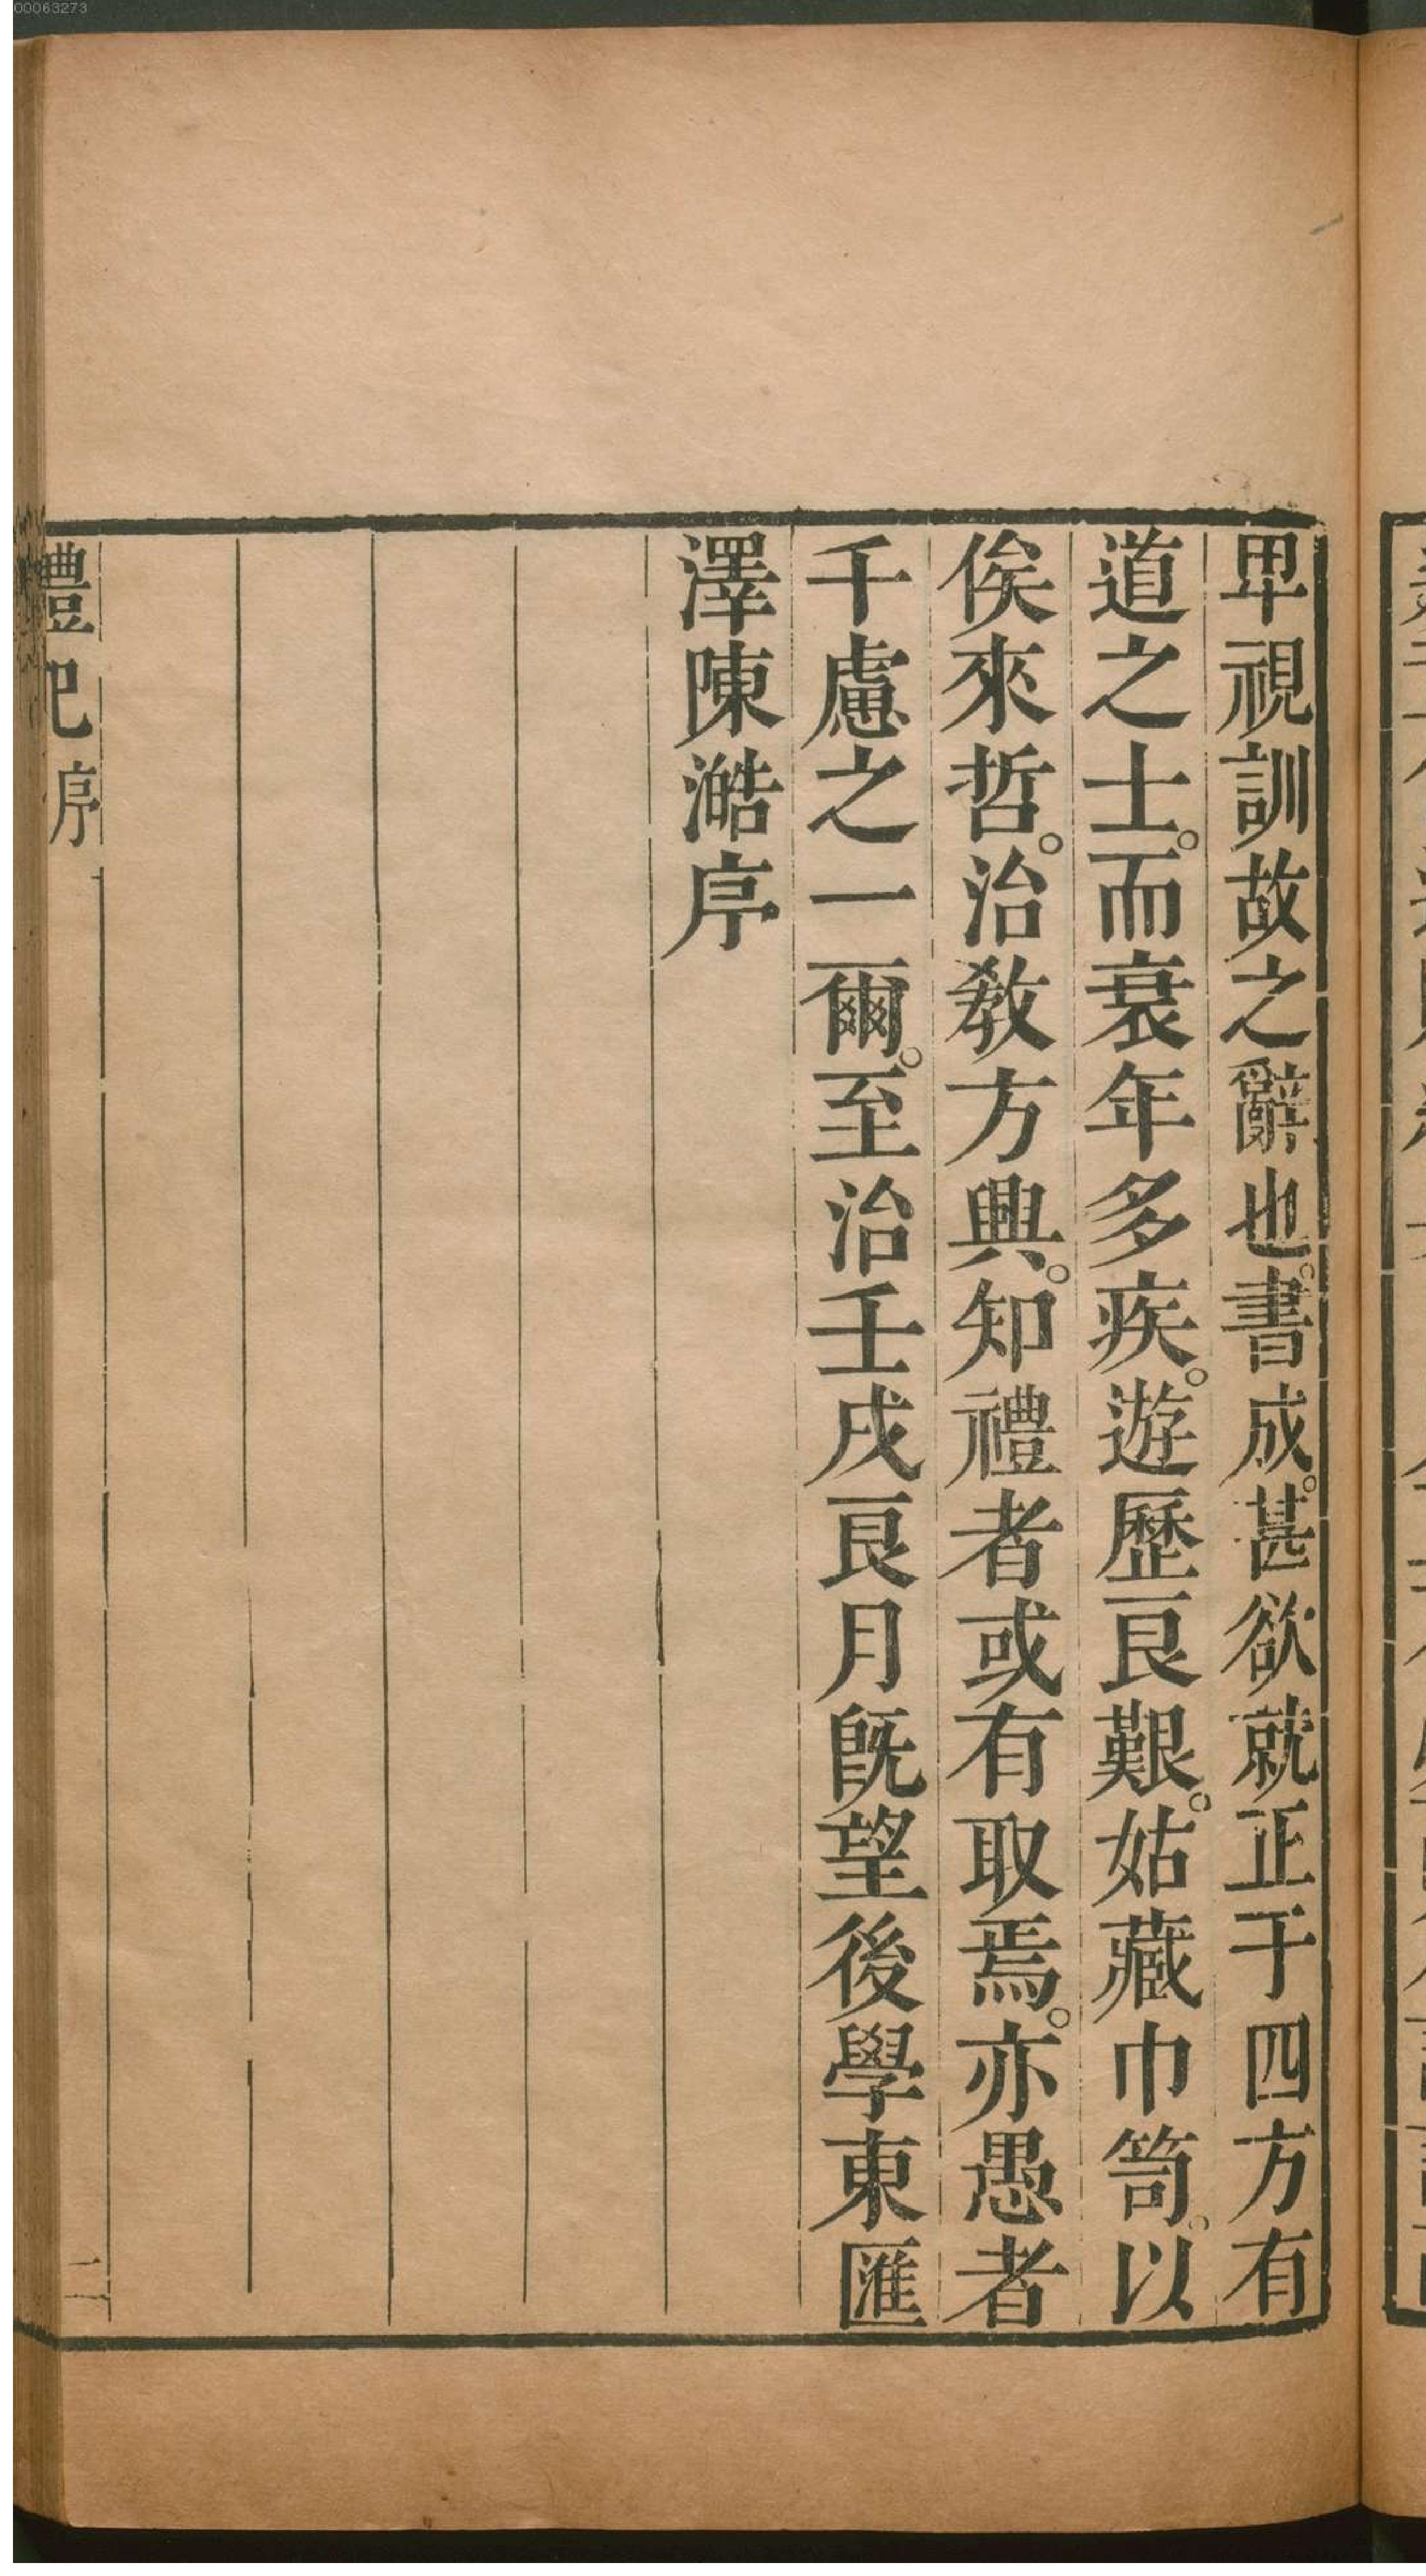 00063273
卑視訓故之辭也。書成。甚欲就正于四方有
道之士。而衰年多疾。遊歷良艱。姑藏巾笥。以
俟來哲。治教方興。知禮者或有取焉。亦愚者
千慮之一爾。至治壬戌良月旣望後學東匯
澤陳澔序
禮記序
二